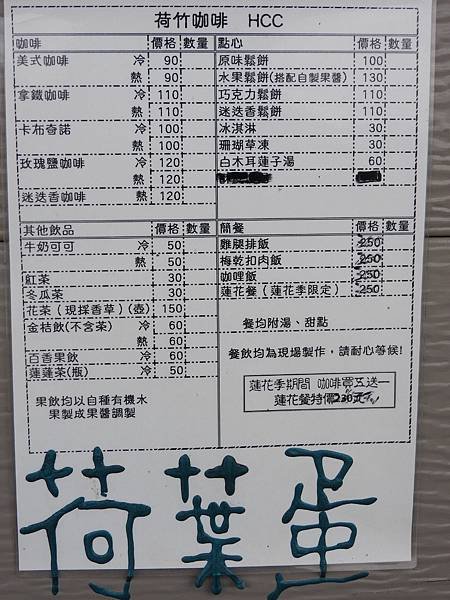 荷竹咖啡 HCC
咖啡 價格 數量 點心 價格 數量
美式咖啡 冷 90 原味鬆餅 100
熱 90 水果鬆餅(搭配自製果醬) 130
拿鐵咖啡 冷 110 巧克力鬆餅 110
熱 110 迷迭香鬆餅 110
卡布奇諾 冷 100 冰淇淋 30
熱 100 珊瑚草凍 30
玫瑰鹽咖啡 冷 120 白木耳蓮子湯 60
熱 120
迷迭香咖啡 熱 120
其他飲品 價格 數量 簡餐 價格 數量
牛奶可可 冷 50 雞腿排飯 250
熱 50 梅乾扣肉飯 250
紅茶 30 咖哩飯 250
冬瓜茶 30 蓮花餐(蓮花季限定) 250
花茶(現採香草)(壺) 150
金桔飲(不含茶) 冷 60 餐均附湯、甜點
熱 60
百香果飲 冷 60 餐飲均為現場製作,請耐心等候!
蓮蓮茶(瓶) 冷 50
蓮花季期間 咖啡買五送一
果飲均以自種有機水 蓮花餐特價230元
果製成果醬調製
荷葉蛋